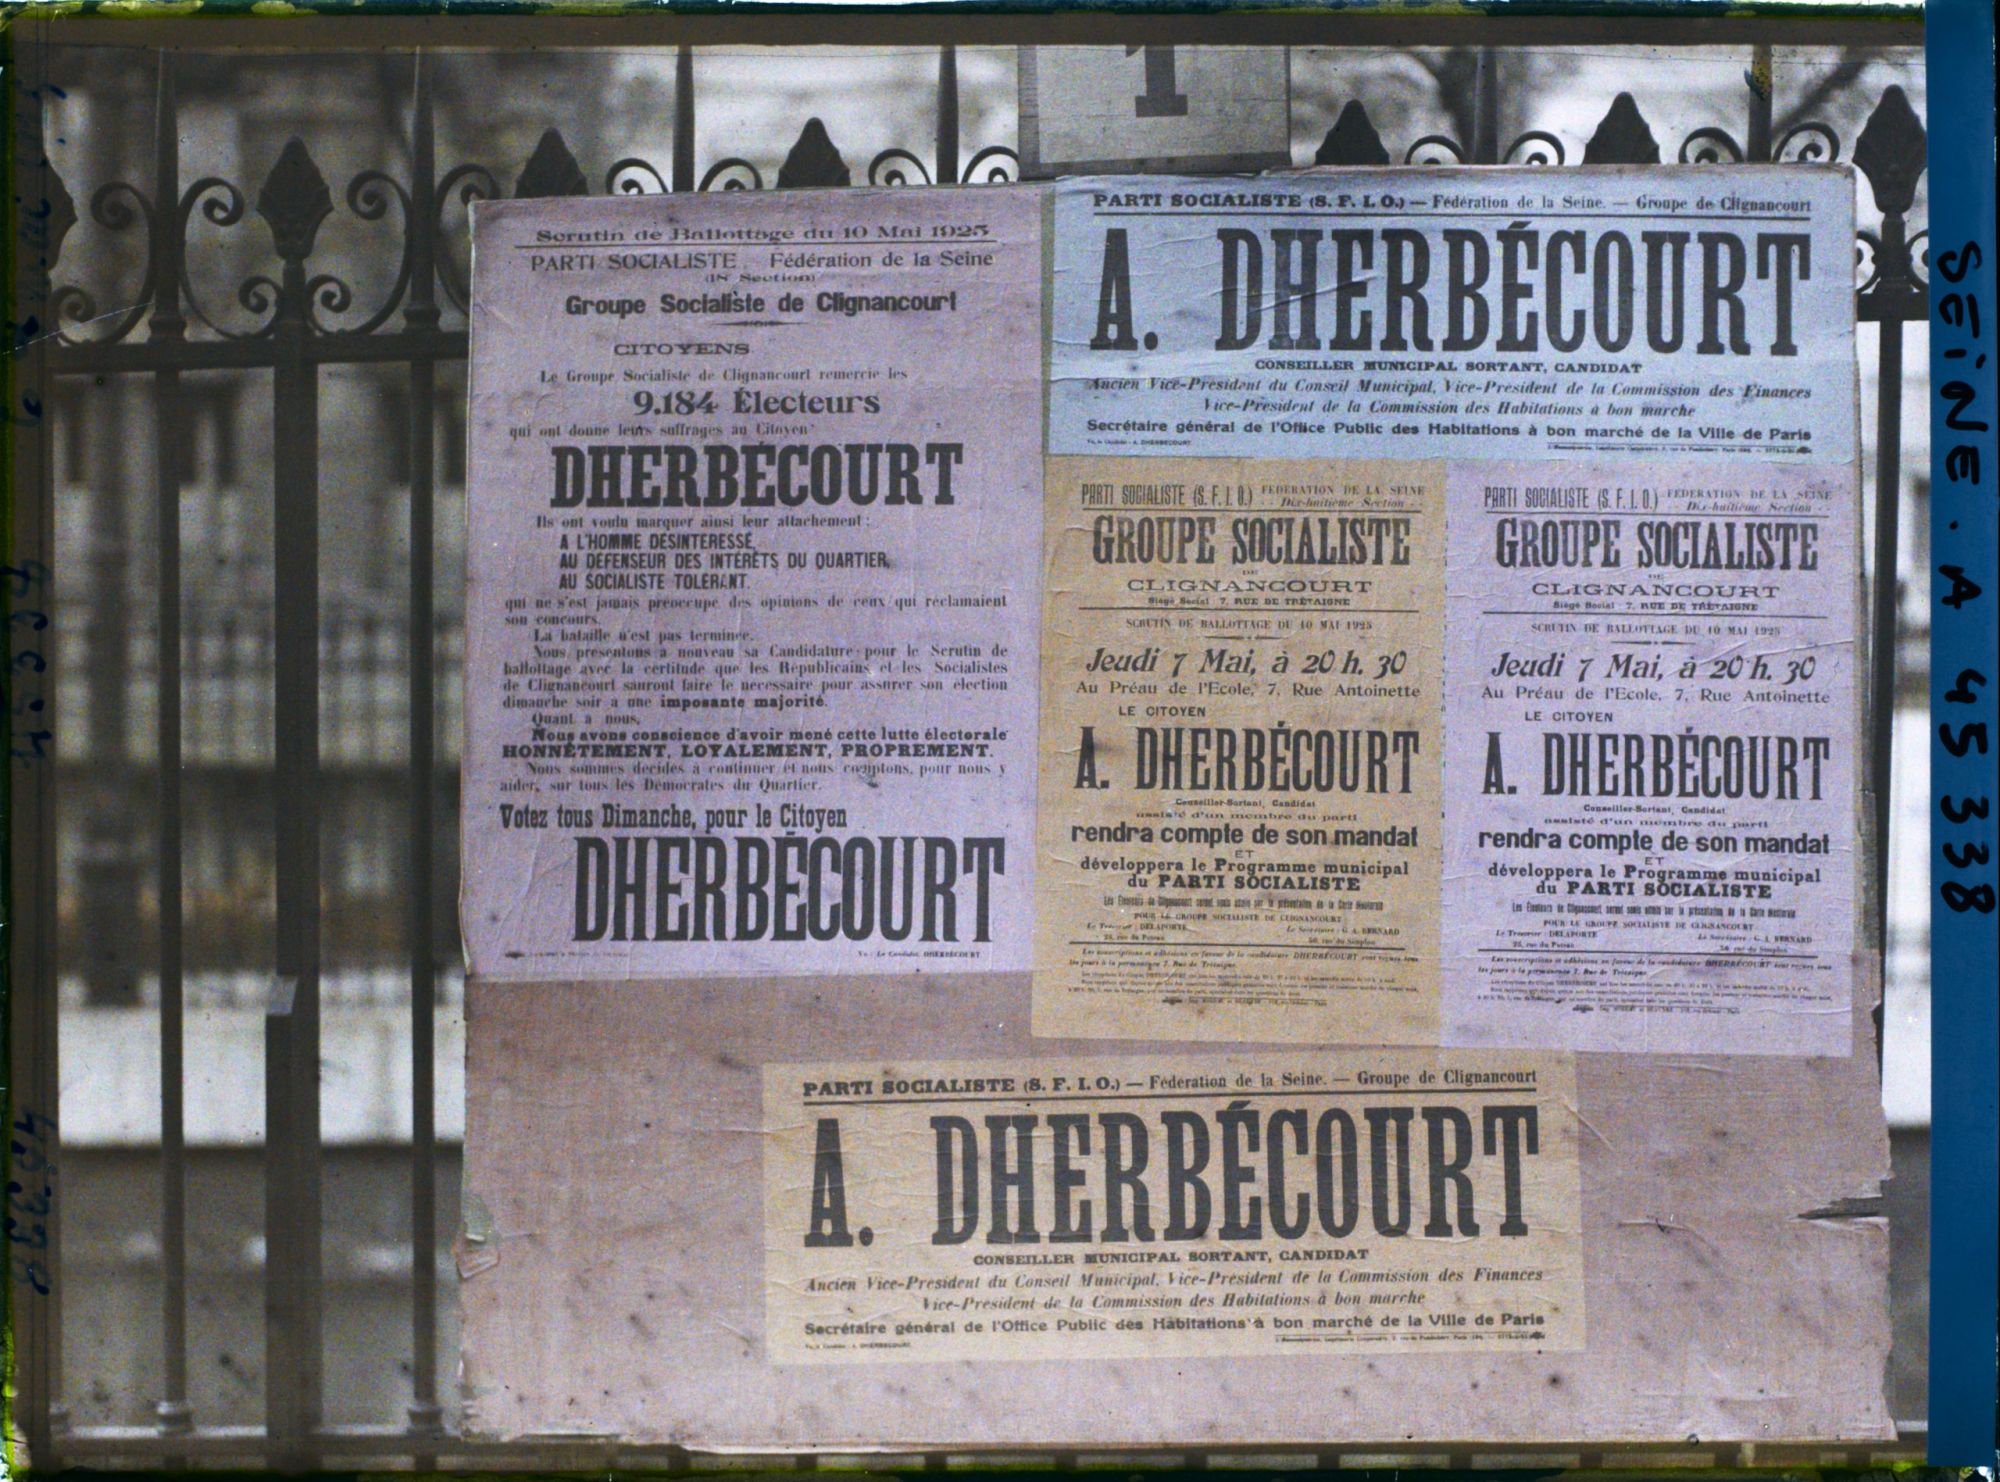 1
Scrutin de Ballottage du 10 Mai 1925
PARTI SOCIALISTE. Fédération de la Seine
(18e Section)
Groupe Socialiste de Clignancourt
CITOYENS
Le Groupe Socialiste de Clignancourt remercie les
9.184 Électeurs
qui ont donné leurs suffrages au Citoyen
DHERBÉCOURT
Ils ont voulu marquer ainsi leur attachement :
A L'HOMME DÉSINTÉRESSÉ,
AU DÉFENSEUR DES INTÉRÊTS DU QUARTIER,
AU SOCIALISTE TOLÉRANT.
qui ne s'est jamais préoccupé des opinions de ceux qui réclamaient
son concours.
La bataille n'est pas terminée.
Nous présentons à nouveau sa Candidature pour le Scrutin de
ballottage avec la certitude que les Républicains et les Socialistes
de Clignancourt sauront faire le nécessaire pour assurer son élection
dimanche soir à une imposante majorité.
Quant à nous,
Nous avons conscience d'avoir mené cette lutte électorale
HONNÊTEMENT, LOYALEMENT, PROPREMENT.
Nous sommes décidés à continuer et nous comptons, pour nous y
aider, sur tous les Démocrates du Quartier.
Votez tous Dimanche, pour le Citoyen
DHERBÉCOURT
Vu : Le Candidat, DHERBÉCOURT
PARTI SOCIALISTE (S. F. I. O.) — Fédération de la Seine. — Groupe de Clignancourt
A. DHERBÉCOURT
CONSEILLER MUNICIPAL SORTANT, CANDIDAT
Ancien Vice-Président du Conseil Municipal, Vice-Président de la Commission des Finances
Vice-Président de la Commission des Habitations à bon marché
Secrétaire général de l'Office Public des Habitations à bon marché de la Ville de Paris
Vu, le Candidat : A. DHERBÉCOURT
PARTI SOCIALISTE (S. F. I. O.) FÉDÉRATION DE LA SEINE
Dix-huitième Section
GROUPE SOCIALISTE
DE
CLIGNANCOURT
Siège Social : 7, RUE DE TRÉTAIGNE
SCRUTIN DE BALLOTTAGE DU 10 MAI 1925
Jeudi 7 Mai, à 20 h. 30
Au Préau de l'Ecole, 7, Rue Antoinette
LE CITOYEN
A. DHERBÉCOURT
Conseiller-Sortant, Candidat
assisté d'un membre du parti
rendra compte de son mandat
ET
développera le Programme municipal
du PARTI SOCIALISTE
Les Électeurs de Clignancourt seront seuls admis sur la présentation de la Carte électorale
POUR LE GROUPE SOCIALISTE DE CLIGNANCOURT
Le Trésorier : DELAPORTE Le Secrétaire : G. A. BERNARD
25, rue du Poteau 50, rue du Simplon
Les souscriptions et adhésions en faveur de la candidature DHERBÉCOURT sont reçues tous
les jours à la permanence 7, Rue de Trétaigne
PARTI SOCIALISTE (S. F. I. O.) FÉDÉRATION DE LA SEINE
Dix-huitième Section
GROUPE SOCIALISTE
DE
CLIGNANCOURT
Siège Social : 7, RUE DE TRÉTAIGNE
SCRUTIN DE BALLOTTAGE DU 10 MAI 1925
Jeudi 7 Mai, à 20 h. 30
Au Préau de l'Ecole, 7, Rue Antoinette
LE CITOYEN
A. DHERBÉCOURT
Conseiller-Sortant, Candidat
assisté d'un membre du parti
rendra compte de son mandat
ET
développera le Programme municipal
du PARTI SOCIALISTE
Les Électeurs de Clignancourt seront seuls admis sur la présentation de la Carte électorale
POUR LE GROUPE SOCIALISTE DE CLIGNANCOURT
Le Trésorier : DELAPORTE Le Secrétaire : G. A. BERNARD
25, rue du Poteau 50, rue du Simplon
Les souscriptions et adhésions en faveur de la candidature DHERBÉCOURT sont reçues tous
les jours à la permanence 7, Rue de Trétaigne
PARTI SOCIALISTE (S. F. I. O.) — Féderation de la Seine. — Groupe de Clignancourt
A. DHERBÉCOURT
CONSEILLER MUNICIPAL SORTANT, CANDIDAT
Ancien Vice-Président du Conseil Municipal, Vice-Président de la Commission des Finances
Vice-Président de la Commission des Habitations à bon marché
Secrétaire général de l'Office Public des Habitations à bon marché de la Ville de Paris
Vu, le Candidat : A. DHERBÉCOURT
SEINE. A 45338
45338